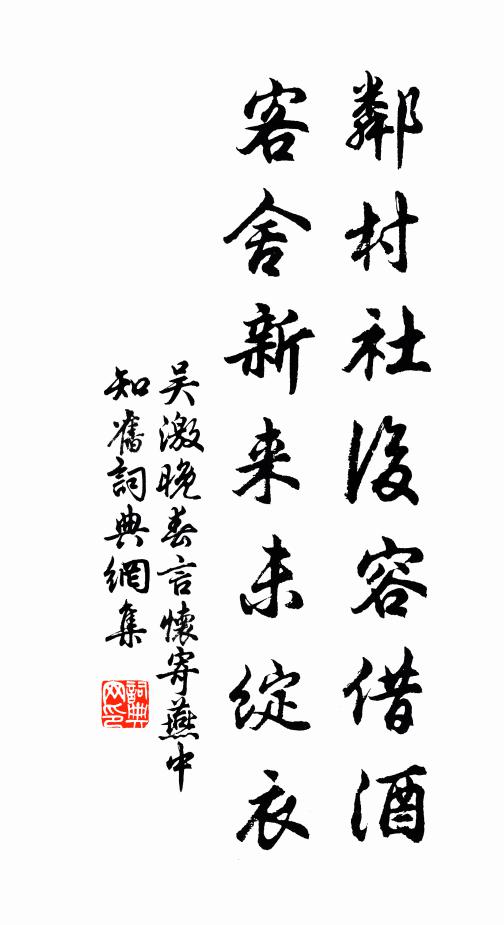 鄰村社後容借酒
客舍新来未綻衣
吴激晚春言懷寄燕中
知舊詞典網集
詞典
网印